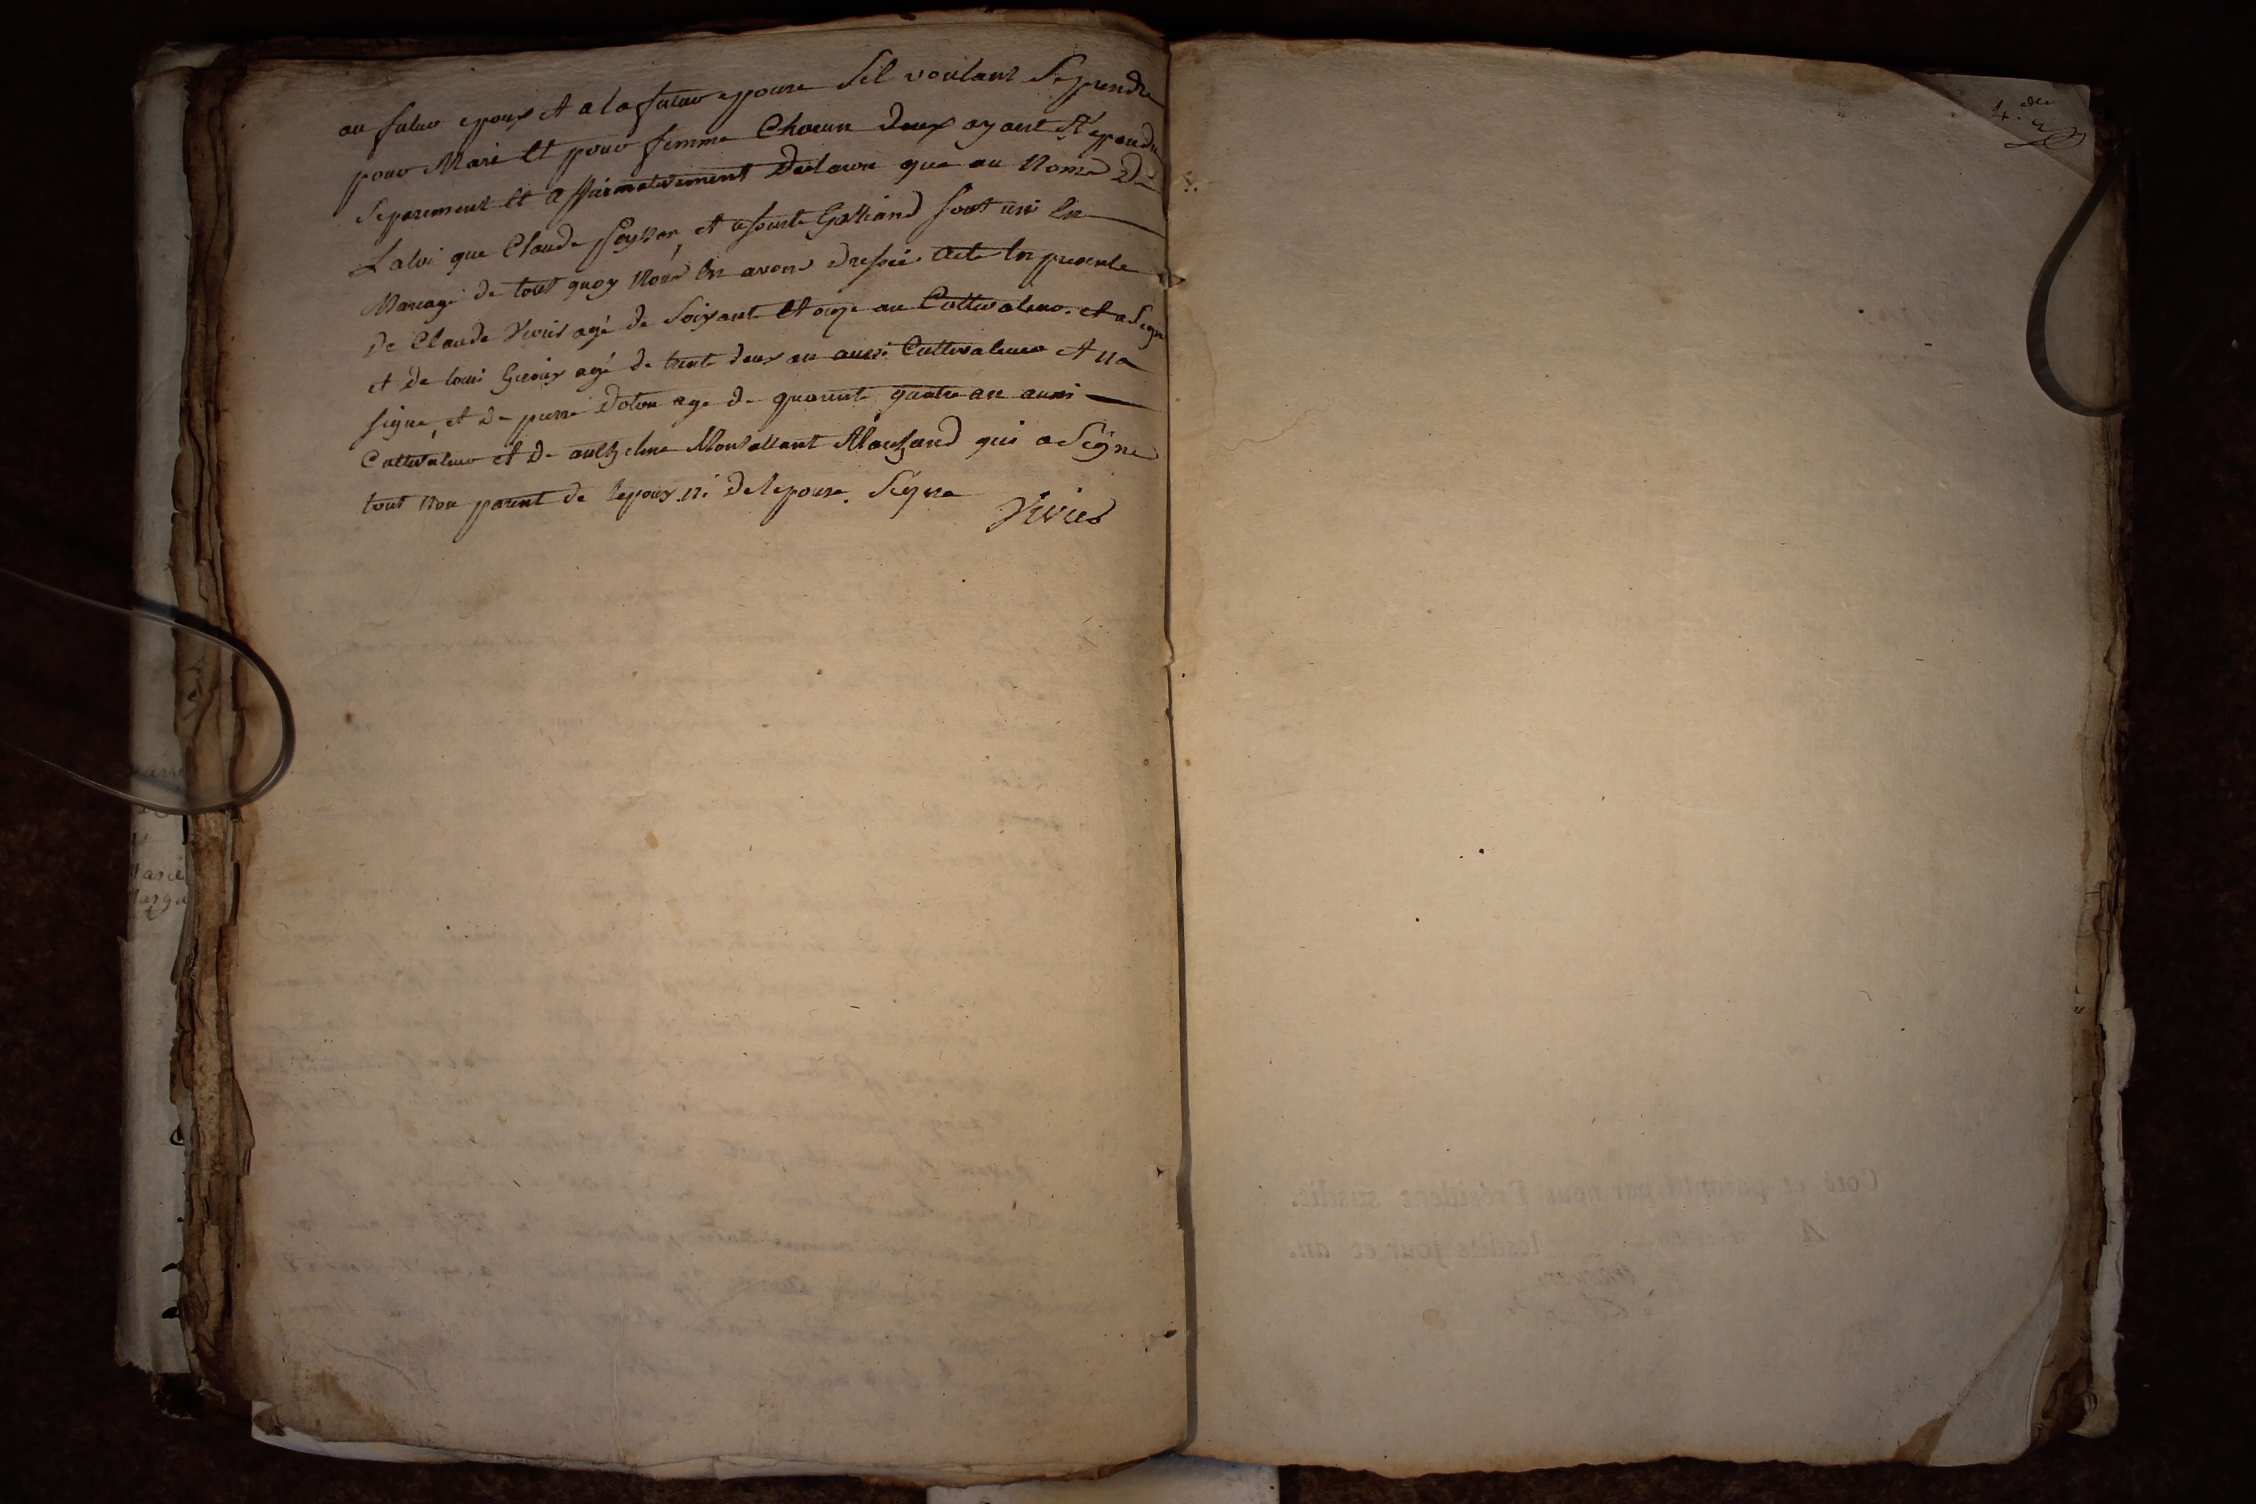 au futur epoux et a la future epouse Sil voulant Se prendre
pour Mari Et pour femme Chacun deux ayant Répondu
Séparément Et affirmativement Declaron que au Nom De
La loi que Claude peysson et Galliand sont uni En
Mariage de tout quoy Nous En avons dressée Acte En presente
De Claude Vivier agé de Soixant Et onze an Cultivateur et a Signé
et De loui agé de trente deux an aussi Cultivateur et na
signé, et De pierre Dolon age De quarente quatre an aussi
Cultivateur et De Marchand qui a Signe
tout Non parent de lepoux Ni de lepouse. Signe
Vivier
4.
Coté et paraphé par nous Président susdit.
lesdits jour et an.